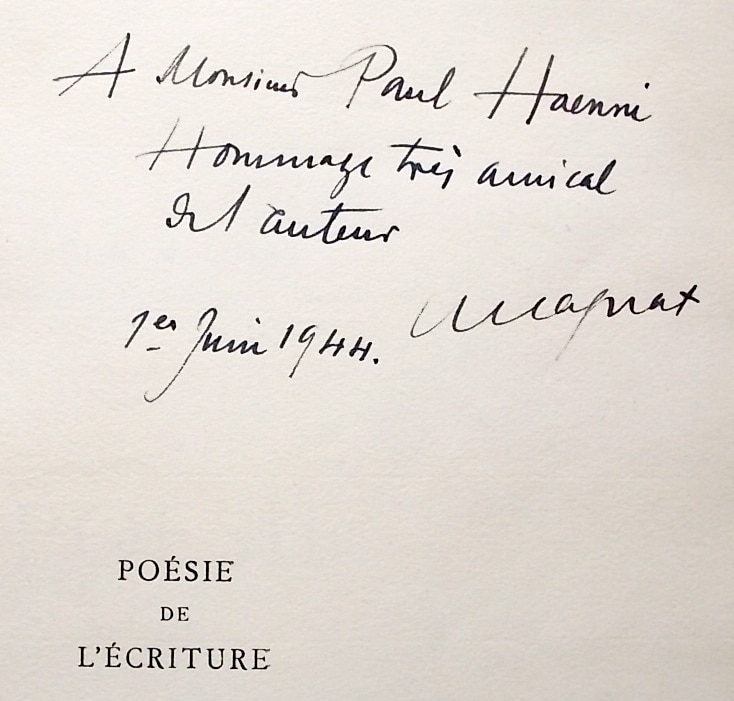 A Monsieur Paul Haenni
Hommage très amical
de l'auteur
1er Juin 1944. Magnat
POÉSIE
DE
L'ÉCRITURE